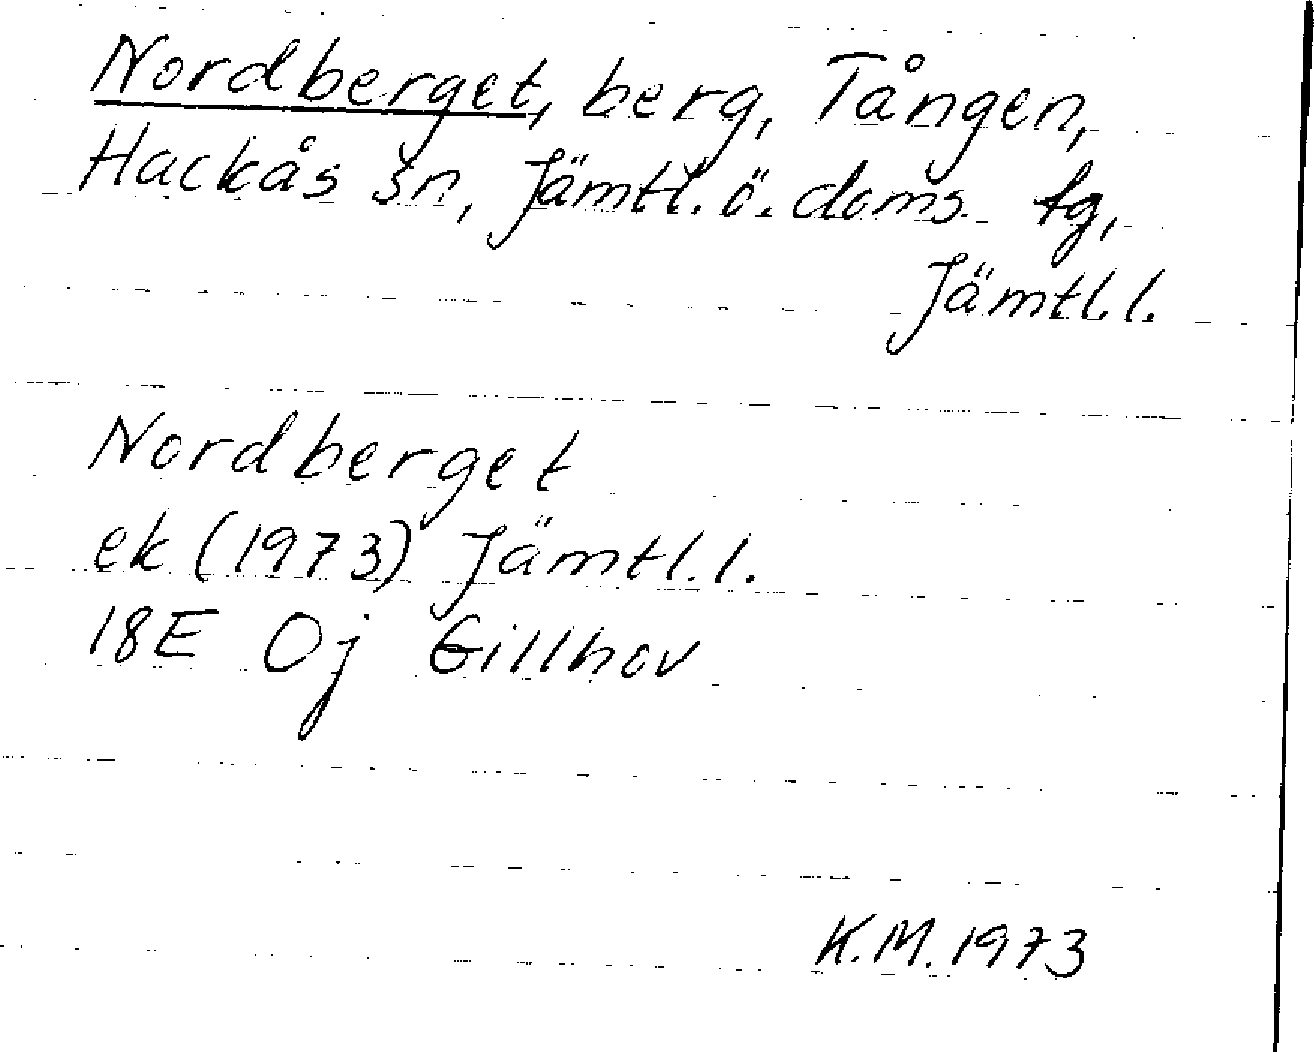 Nordberget, berg, Tången,
Hackås sn, Jämtl. ö. doms. tg,
Jämtl.l.
Nordberget
ek (1973) Jämtl.l.
18E 0j Gillhov
K.M. 1973